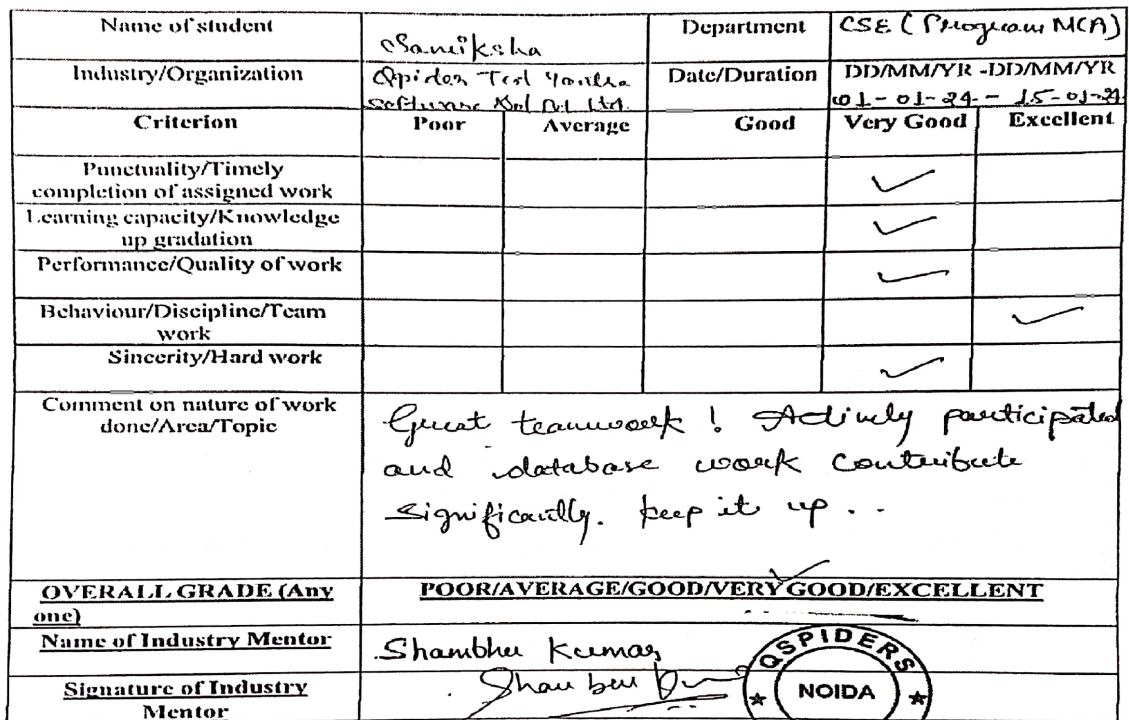 Name of student
Samiksha
Department
CSE (Program MCA)
Industry/Organization
Qspiders Test Yantra
Software Ltd.
Date/Duration
DD/MM/YR -DD/MM/YR
01-01-24 - 15-01-24
Criterion Poor Average Good Very Good Excellent
Punctuality/Timely
completion of assigned work
✓
Learning capacity/Knowledge
up gradation
✓
Performance/Quality of work ✓
Behaviour/Discipline/Team
work
✓
Sincerity/Hard work ✓
Comment on nature of work
done/Area/Topic
Great teamwork ! Actively participated
and database work contribute
significantly. keep it up ..
OVERALL GRADE (Any
one)
POOR/AVERAGE/GOOD/VERY GOOD/EXCELLENT
Name of Industry Mentor
Shambhu Kumar
Signature of Industry
Mentor
QSPIDERS
NOIDA